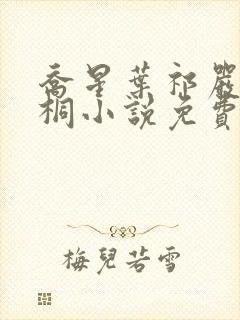 喬星葉祁嚴
桐小說免費
梅兒若雪